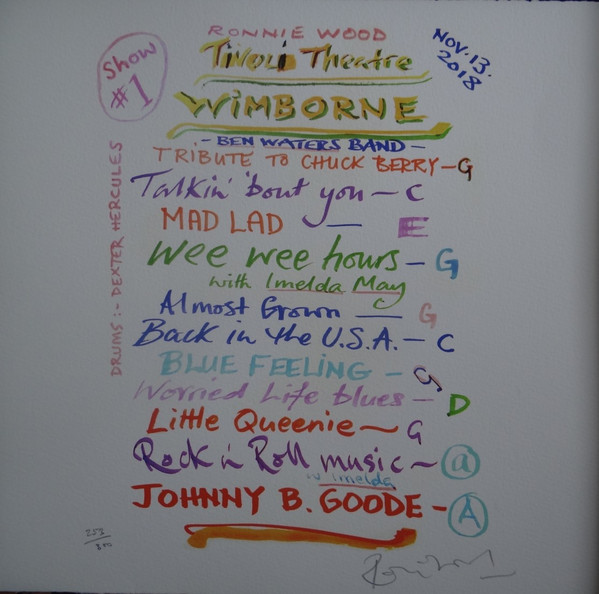 RONNIE WOOD
Tivoli Theatre
WIMBORNE
NOV. 13.
2018
Show
#1
- BEN WATERS BAND -
TRIBUTE TO CHUCK BERRY - G
Talkin' 'bout you - C
MAD LAD - E
Wee wee hours - G
with Imelda May
Almost Grown - G
Back in the U.S.A. - C
BLUE FEELING - G
Worried Life blues - D
Little Queenie ~ G
Rock n Roll music ~ a
w imelda
JOHNNY B. GOODE - A
DRUMS :- DEXTER HERCULES